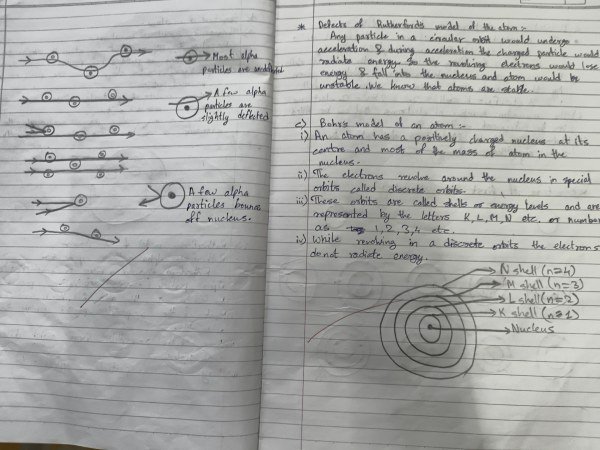 Most alpha
particles are undeflected
A few alpha
particles are
slightly deflected
A few alpha
particles bounce
off nucleus.
* Defects of Rutherford's model of the atom:
Any particle in a circular orbit would undergo
acceleration & during acceleration the charged particle would
radiate energy. So the revolving electrons would lose
energy & fall into the nucleus and atom would be
unstable. We know that atoms are stable.
c) Bohr's model of an atom :-
i) An atom has a positively charged nucleus at its
centre and most of the mass of atom in the
nucleus.
ii) The electrons revolve around the nucleus in special
orbits called discrete orbits.
iii) These orbits are called shells or energy levels and are
represented by the letters K, L, M, N etc. or number
as 1, 2, 3, 4 etc.
iv) While revolving in a discrete orbits the electrons
do not radiate energy.
N shell (n=4)
M shell (n=3)
L shell (n=2)
K shell (n=1)
Nucleus